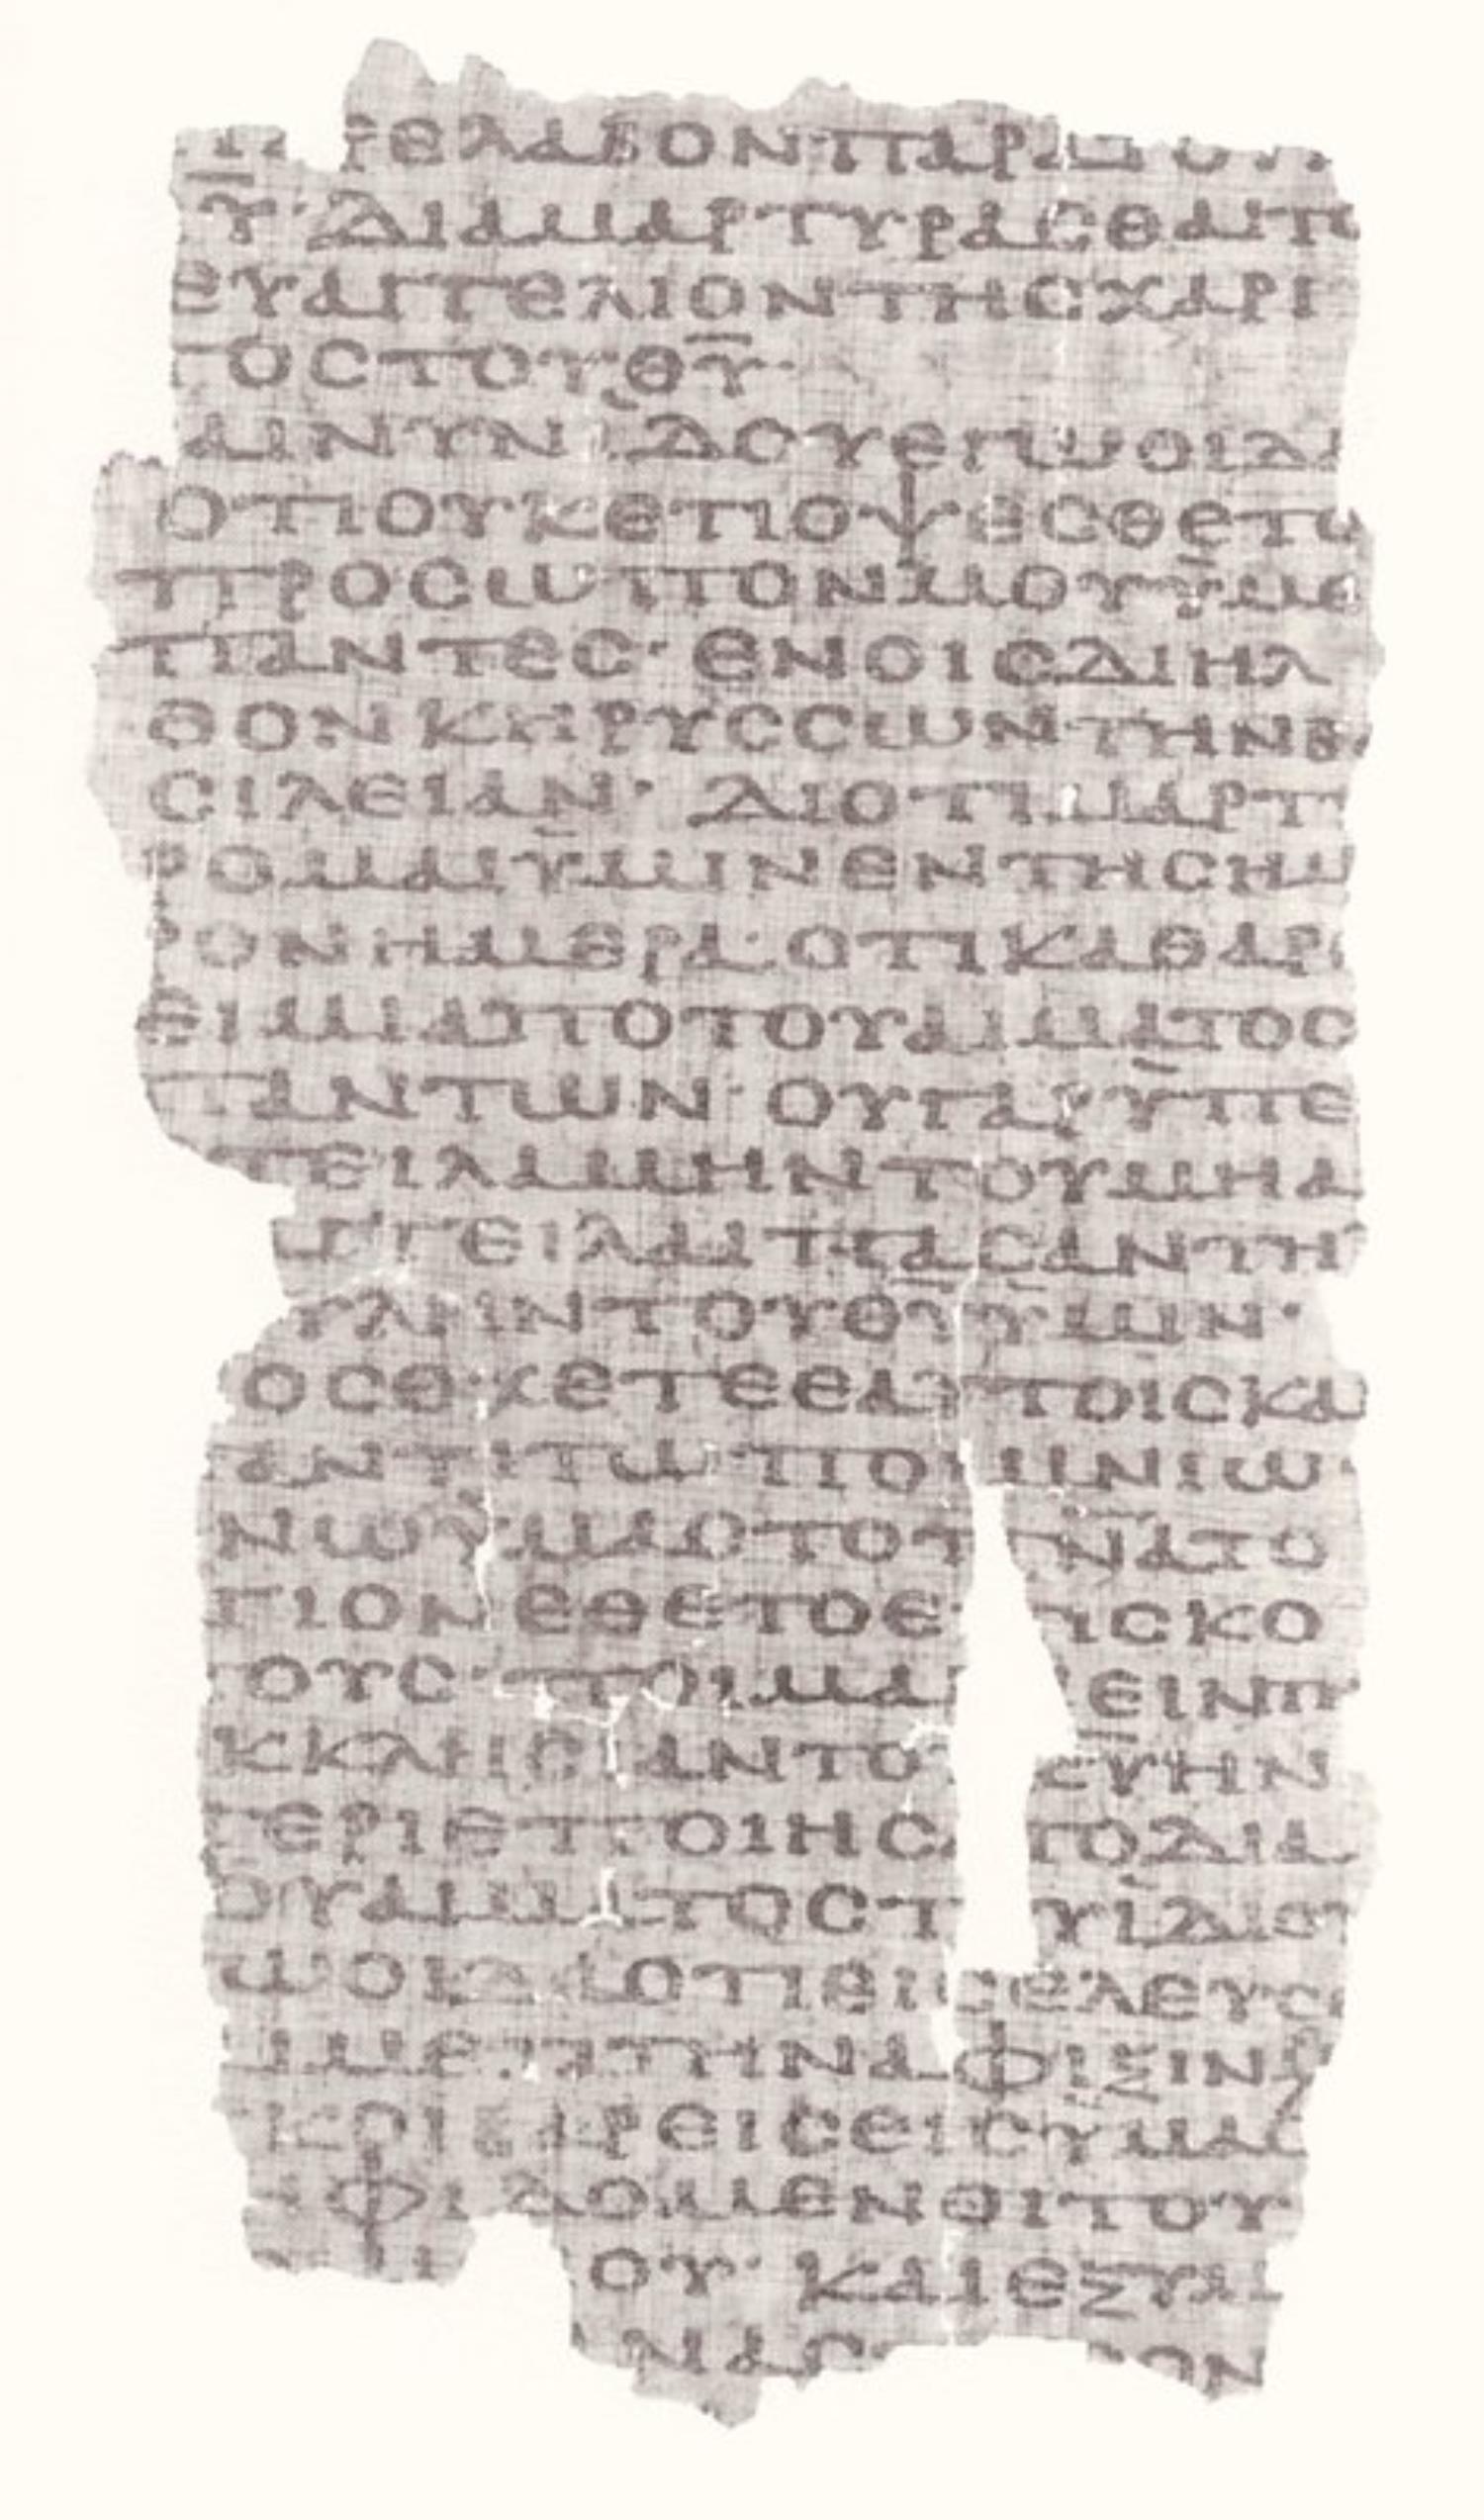 ΡΕΛΑΒΟΝΠΑΡΑΤΟΥ
Υ· ΔΙΑΜΑΡΤΥΡΑCΘΑΙΤΟ
ΕΥΑΓΓΕΛΙΟΝΤΗCΧΑΡΙ
ΤΟCΤΟΥΘΥ·
ΑΙΝΥΝΙΔΟΥΕΓΩΟΙΔΑ
ΟΤΙΟΥΚΕΤΙΟΨΕCΘΕΤΟ
ΠΡΟCΩΠΟΝΜΟΥΥΜΕ
ΠΑΝΤΕC· ΕΝΟΙCΔΙΗΛ
ΘΟΝΚΗΡΥCCΩΝΤΗΝΒΑ
CΙΛΕΙΑΝ· ΔΙΟΤΙΜΑΡΤΥ
ΡΟΜΑΙΥΜΙΝΕΝΤΗCΗΜ
ΡΟΝΗΜΕΡΑ· ΟΤΙΚΑΘΑΡΟ
ΕΙΜΙΑΠΟΤΟΥΑΙΜΑΤΟC
ΠΑΝΤΩΝ· ΟΥΓΑΡΥΠΕ
CΤΕΙΛΑΜΗΝΤΟΥΜΗΑ
ΑΓΓΕΙΛΑΙΠΑCΑΝΤΗ
ΥΛΗΝΤΟΥΘΥΥΜΙΝ·
ΟCΕΧΕΤΕΕΑΥΤΟΙCΚΑΙ
ΠΑΝΤΙΤΩΠΟΙΜΝΙΩ·
ΝΩΥΜΑCΤΟΠΝΑΤΟ
ΓΙΟΝΕΘΕΤΟΕΠΙCΚΟ
ΠΟΥC· ΠΟΙΜΑΙΝΕΙΝΤΗ
ΚΚΛΗCΙΑΝΤΟΥΚΥΗΝ
ΠΕΡΙΕΠΟΙΗCΑΤΟΔΙΑ
ΟΥΑΙΜΑΤΟCΤΟΥΙΔΙΟΥ
ΓΩΟΙΔΑΟΤΙΕΙCΕΛΕΥC
ΑΙΜΕΤΑΤΗΝΑΦΙΞΙΝΜ
ΥΚΟΙΒΑΡΕΙCΕΙCΥΜΑC
ΗΦΙΔΟΜΕΝΟΙΤΟΥ
ΟΥ· ΚΑΙΕΞΥΜ
ΑΝΑC ΟΝ